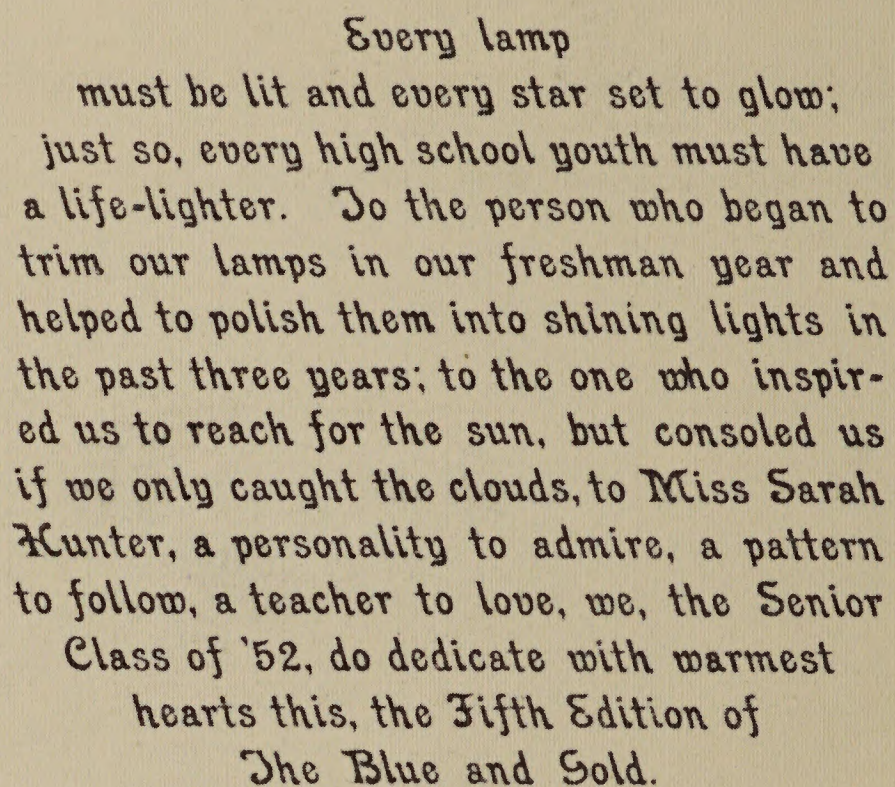 Every lamp
must be lit and every star set to glow;
just so, every high school youth must have
a life-lighter. To the person who began to
trim our lamps in our freshman year and
helped to polish them into shining lights in
the past three years; to the one who inspir-
ed us to reach for the sun, but consoled us
if we only caught the clouds, to Miss Sarah
Hunter, a personality to admire, a pattern
to follow, a teacher to love, we, the Senior
Class of '52, do dedicate with warmest
hearts this, the Fifth Edition of
The Blue and Gold.